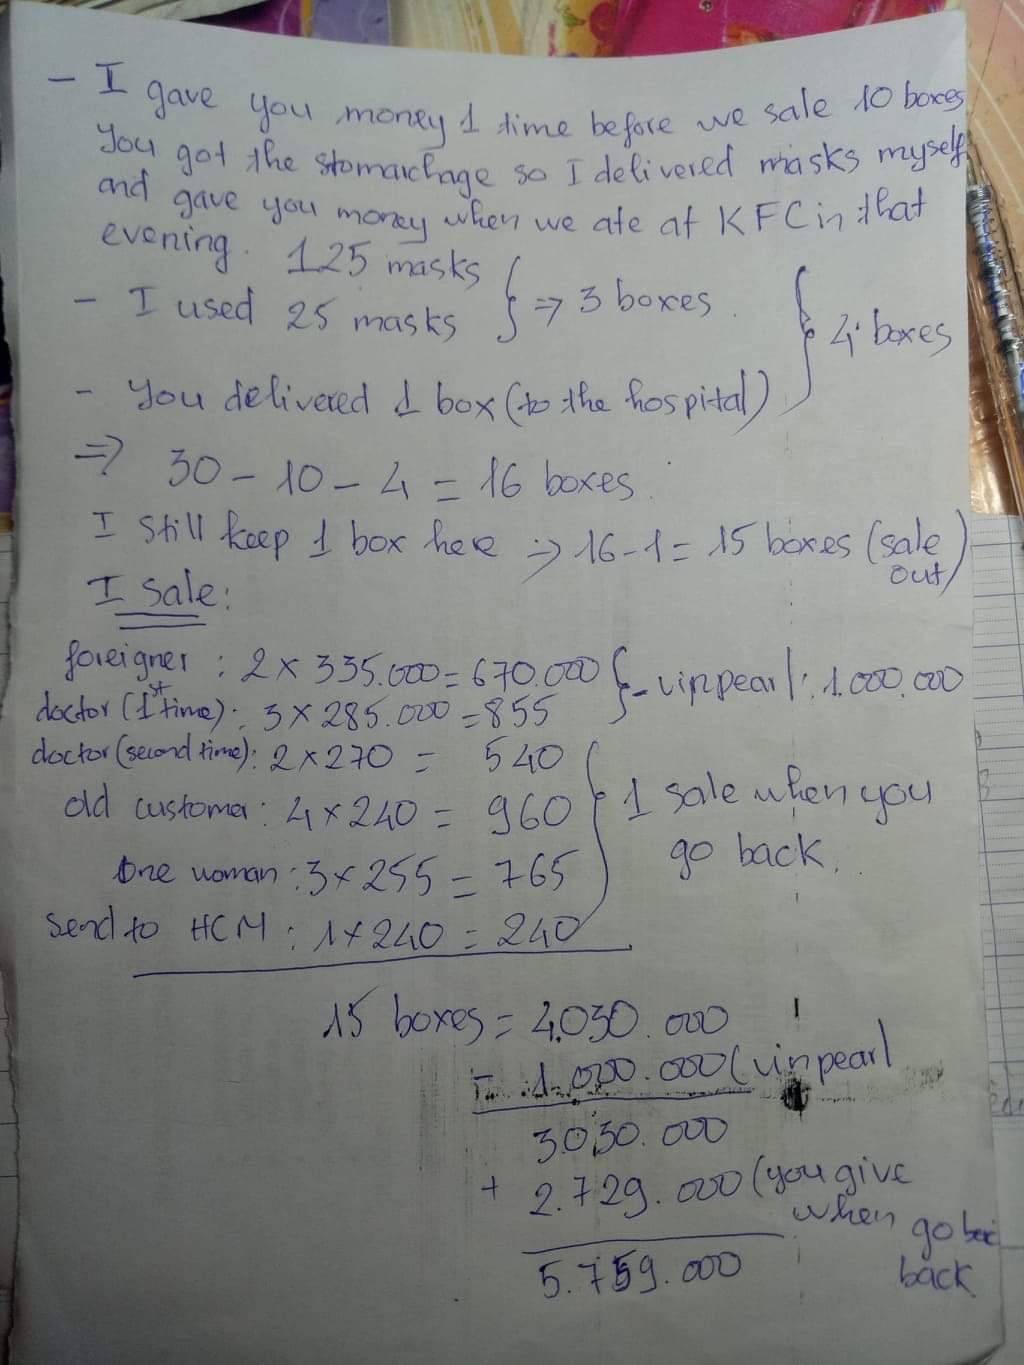 - I gave you money 1 time before we sale 10 boxes
You got the stomarchage so I delivered masks myself
and gave you money when we ate at KFC in that
evening. 125 masks
- I used 25 masks } => 3 boxes.
- You delivered 1 box (to the hospital) } 4 boxes
=> 30 - 10 - 4 = 16 boxes.
I still keep 1 box here => 16 - 1 = 15 boxes (sale out)
I sale:
foreigner : 2 x 335.000 = 670.000
doctor (1st time): 3 x 285.000 = 855 } - vinpearl: 1.000.000
doctor (second time): 2 x 270 = 540
old customer: 4 x 240 = 960 } 1 sale when you
go back.
One woman: 3 x 255 = 765
Send to HCM: 1 x 240 = 240
15 boxes = 4.030.000
- 1.000.000 (vinpearl
3.030.000
+ 2.729.000 (you give
when go
back
5.759.000